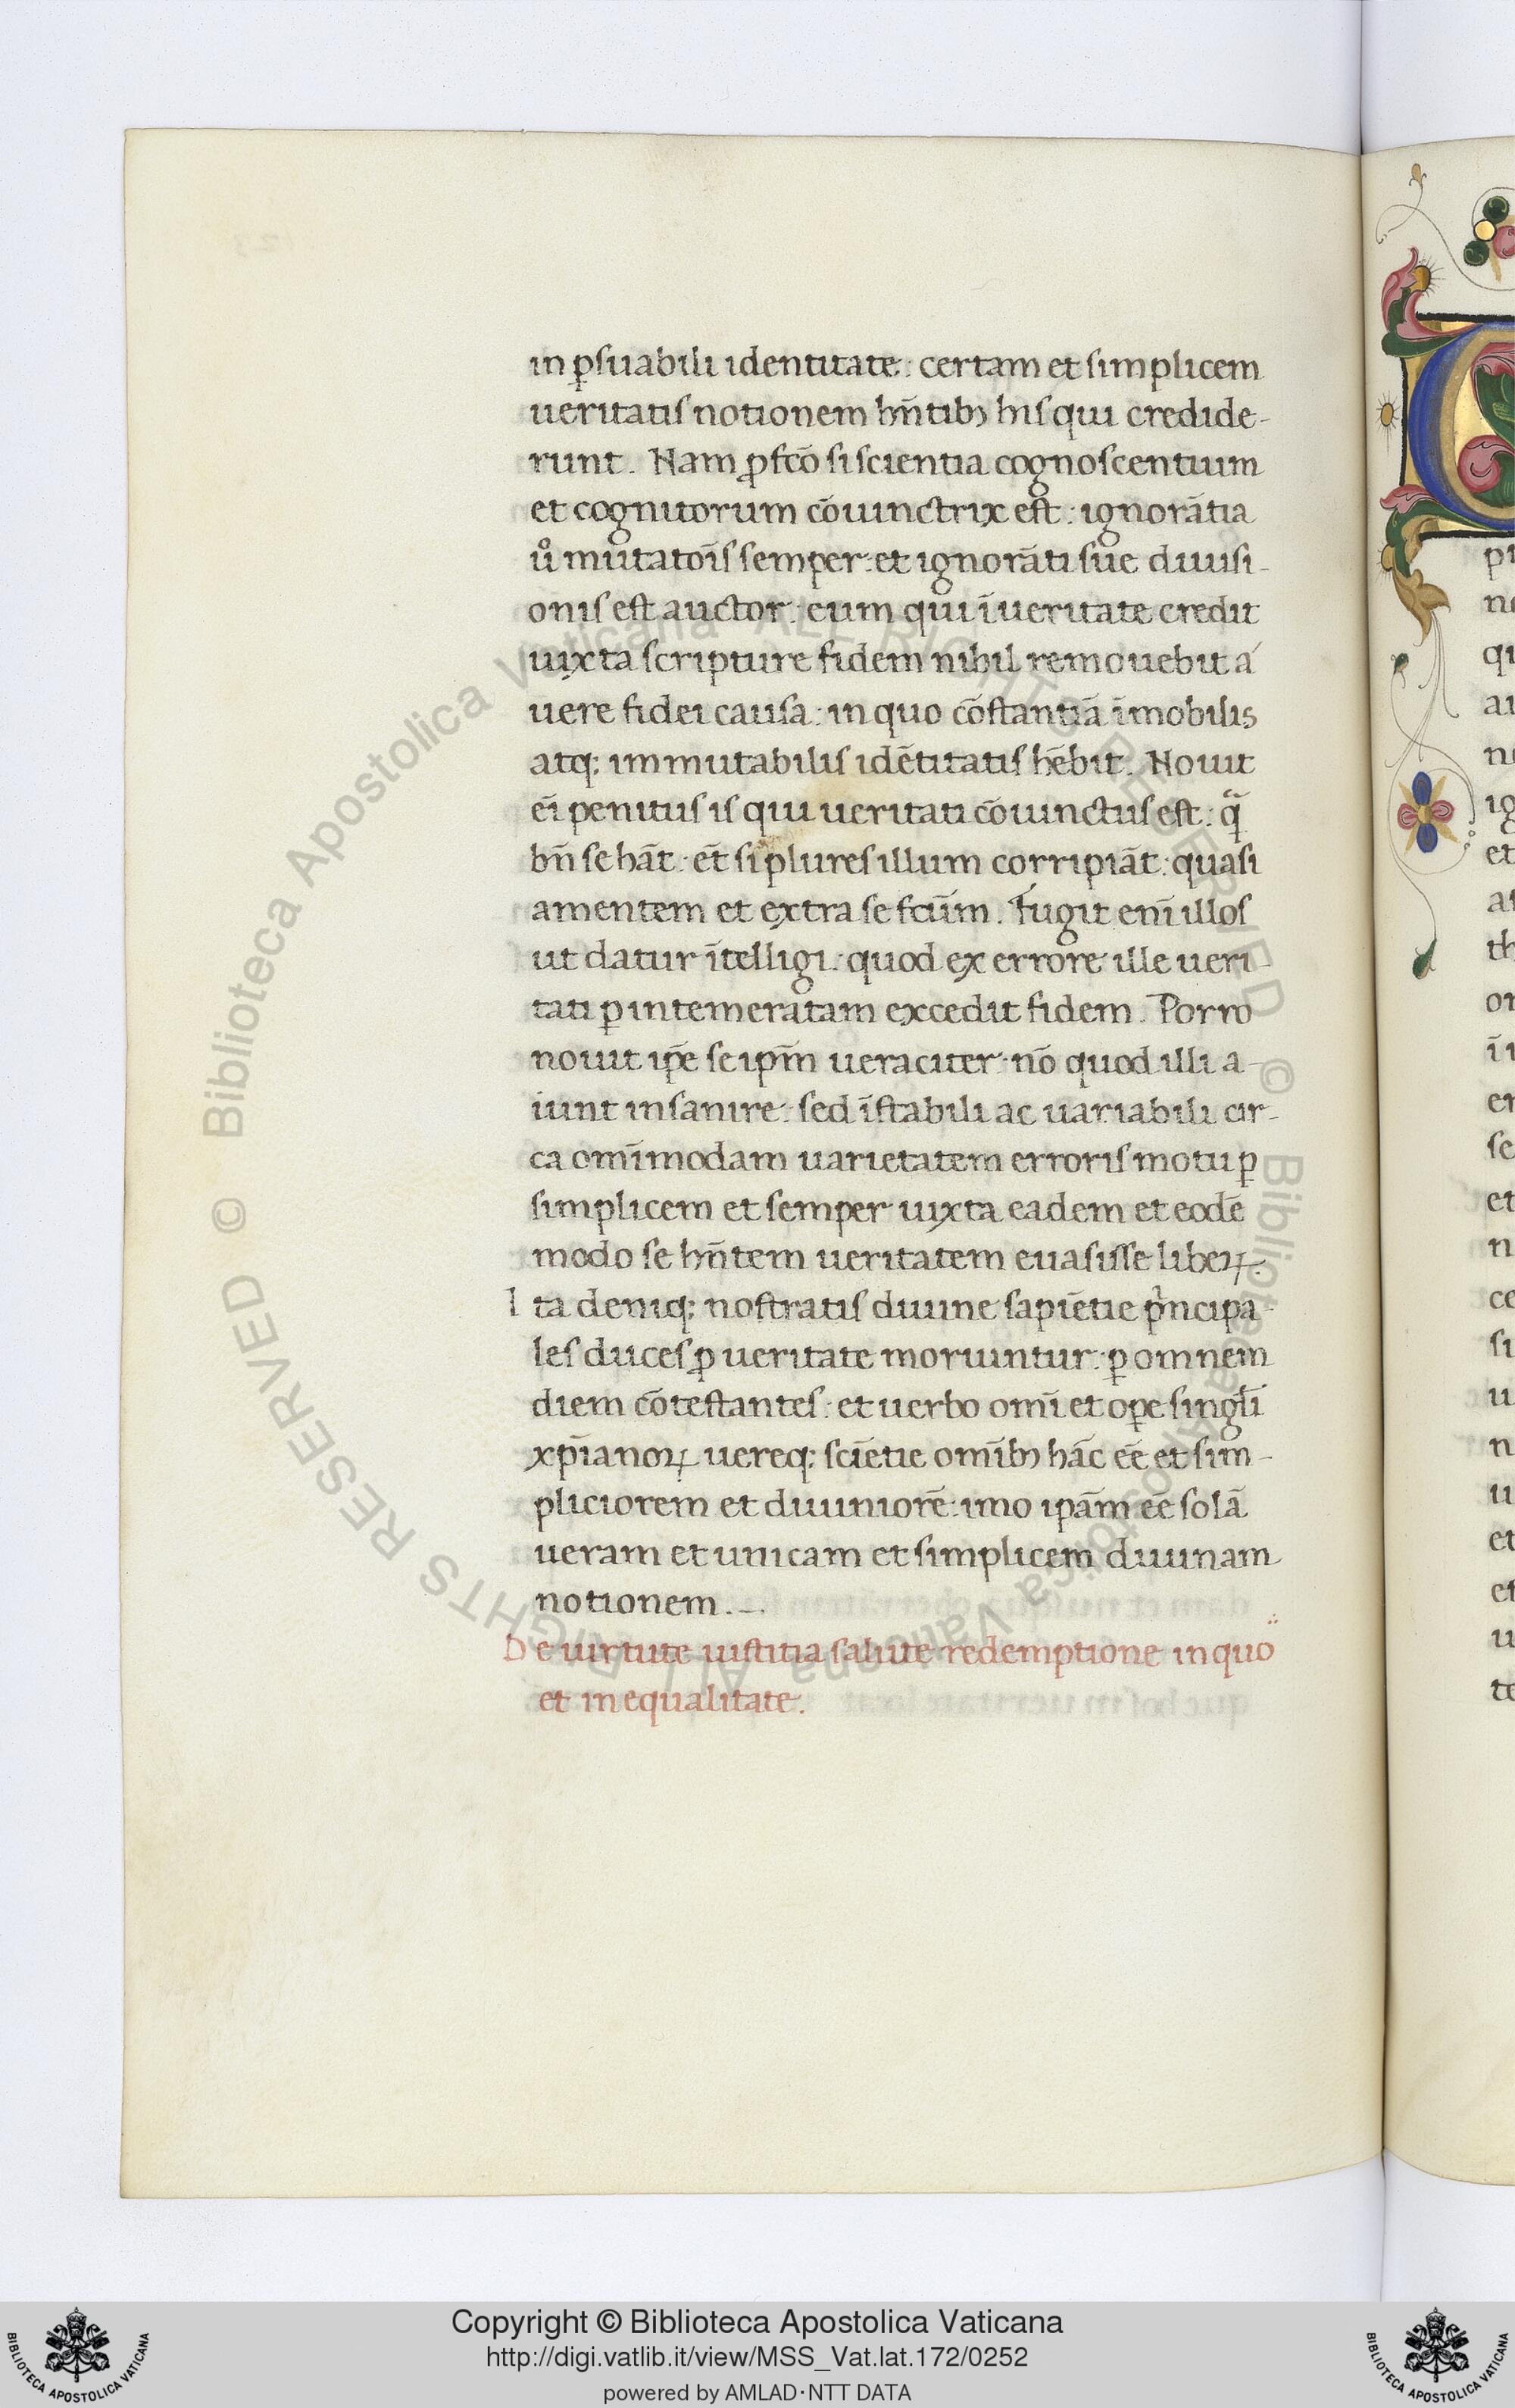 in ꝑsuabili identitate: certam et simplicem
ueritatis notionem hn̄tibꝫ his qui credide-
runt. Nam ꝓfcō si scientia cognoscentium
et cognitorum cōiunctrix est: ignorātia
uͦ mutatoīs semper: et ignorāti sue diuisi-
onis est auctor: eum qui ī ueritate credit
iuxta scripture fidem nihil remouebit á
uere fidei causa: in quo cōstantiā īmobilis
atq; immutabilis idētitatis hēbit. Nouit
eī penitus is qui ueritati cōiunctus est: q̄
bn̄ se hāt: et̄ si plures illum corripiāt: quasi
amentem et extra se fctūm. Fugit enī illos
ut datur ītelligi: quod ex errore ille ueri-
tati ꝑ intemeratam excedit fidem. Porro
nouit ip̄e se ip̄m ueraciter: nō quod illi a-
iunt insanire: sed īstabili ac uariabili cir-
ca omīmodam uarietatem erroris motu ꝑ
simplicem et semper iuxta eadem et eodē
modo se hn̄tem ueritatem euasisse liberꝝ.
Ita deniq; nostratis diuine sapiētie pͥncipa-
les duces ꝓ ueritate moriuntur: ꝑ omnem
diem cōtestantes: et uerbo omī et oꝑe singlī
xp̄ianoꝝ uereq; sciētie omībꝫ hāc eē et sim-
pliciorem et diuiniorē: imo ipām eē solā
ueram et unicam et simplicem diuinam
notionem.
De uirtute iustitia salute redemptione in quo
et inequalitate.
pi
ne
qu
au
ne
ig
et
at
th
or
ī i
er
se
et
n
ce
si
u
n
u
et
et
u
te
© Biblioteca Apostolica Vaticana ALL RIGHTS RESERVED © Biblioteca Apostolica Vaticana ALL RIGHTS RESERVED
Copyright © Biblioteca Apostolica Vaticana
http://digi.vatlib.it/view/MSS_Vat.lat.172/0252
powered by AMLAD·NTT DATA
BIBLIOTECA APOSTOLICA VATICANA
BIBLIOTECA APOSTOLICA VATICANA